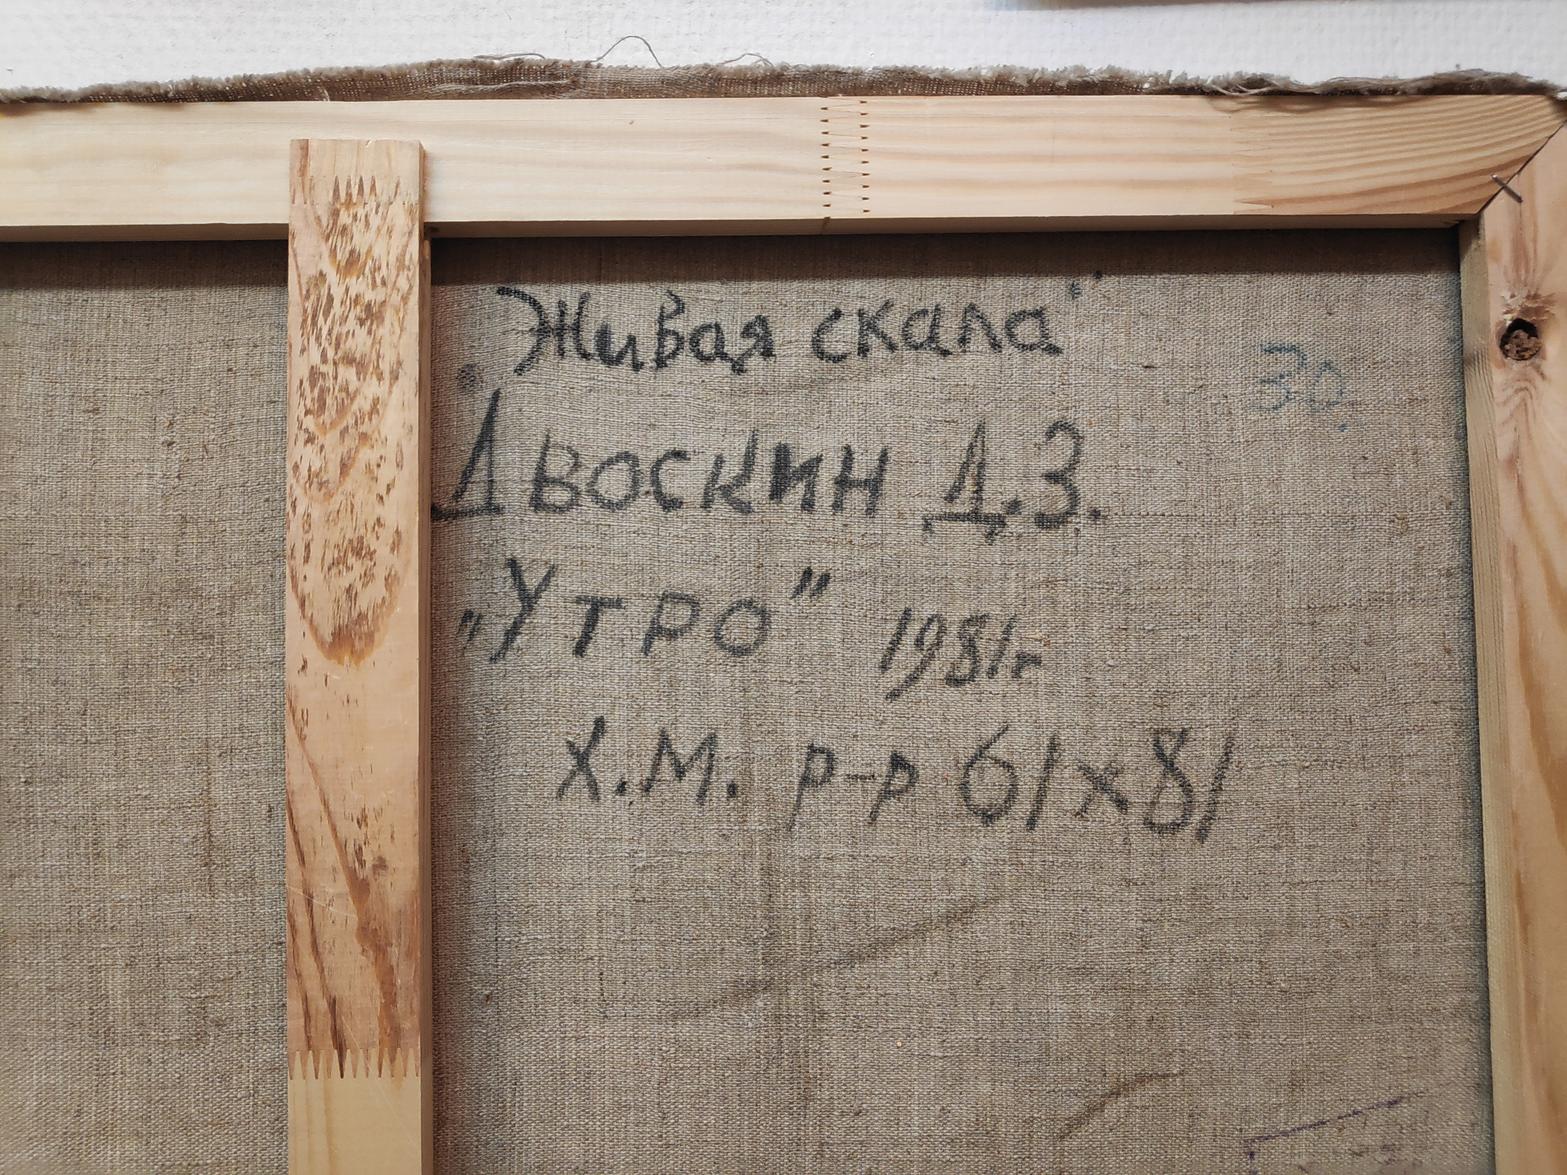 "Живая скала"
30
Двоскин Д.З.
„Утро" 1981г
Х.М. р-р 61х81